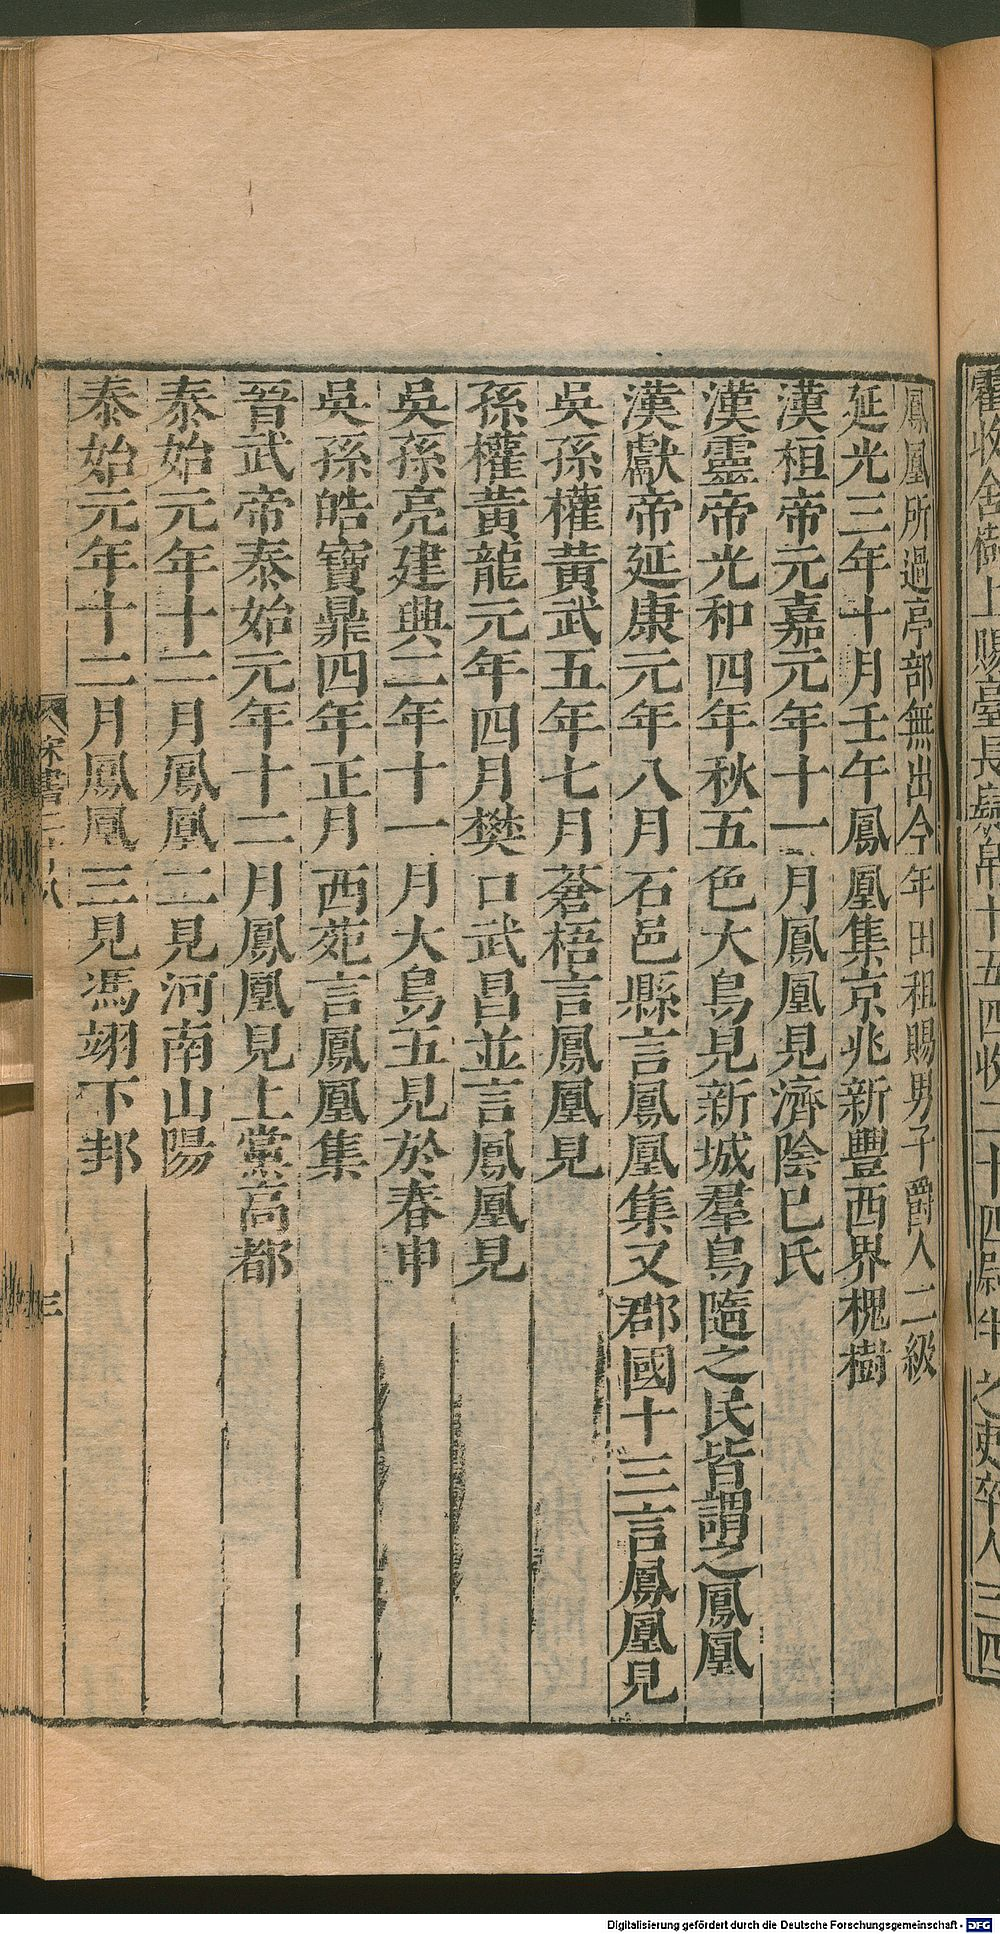 霍收舍樹上賜臺長帛十五匹收二十匹尉半之吏卒人三匹
鳳凰所過亭部無出今年田租賜男子爵人二級
延光三年十月壬午鳳凰集京兆新豐西界槐樹
漢桓帝元嘉元年十一月鳳凰見濟陰巳氏
漢靈帝光和四年秋五色大鳥見新城羣鳥隨之民皆謂之鳳凰
漢獻帝延康元年八月石邑縣言鳳凰集又郡國十三言鳳凰見
吳孫權黃武五年七月蒼梧言鳳凰見
孫權黃龍元年四月樊口武昌並言鳳凰見
吳孫亮建興二年十一月大鳥五見於春申
吳孫皓寶鼎四年正月西苑言鳳凰集
晉武帝泰始元年十二月鳳凰見上黨高都
泰始元年十二月鳳凰二見河南山陽
泰始元年十二月鳳凰三見馮翊下邽
宋書二十八
三
Digitalisierung gefördert durch die Deutsche Forschungsgemeinschaft - DFG